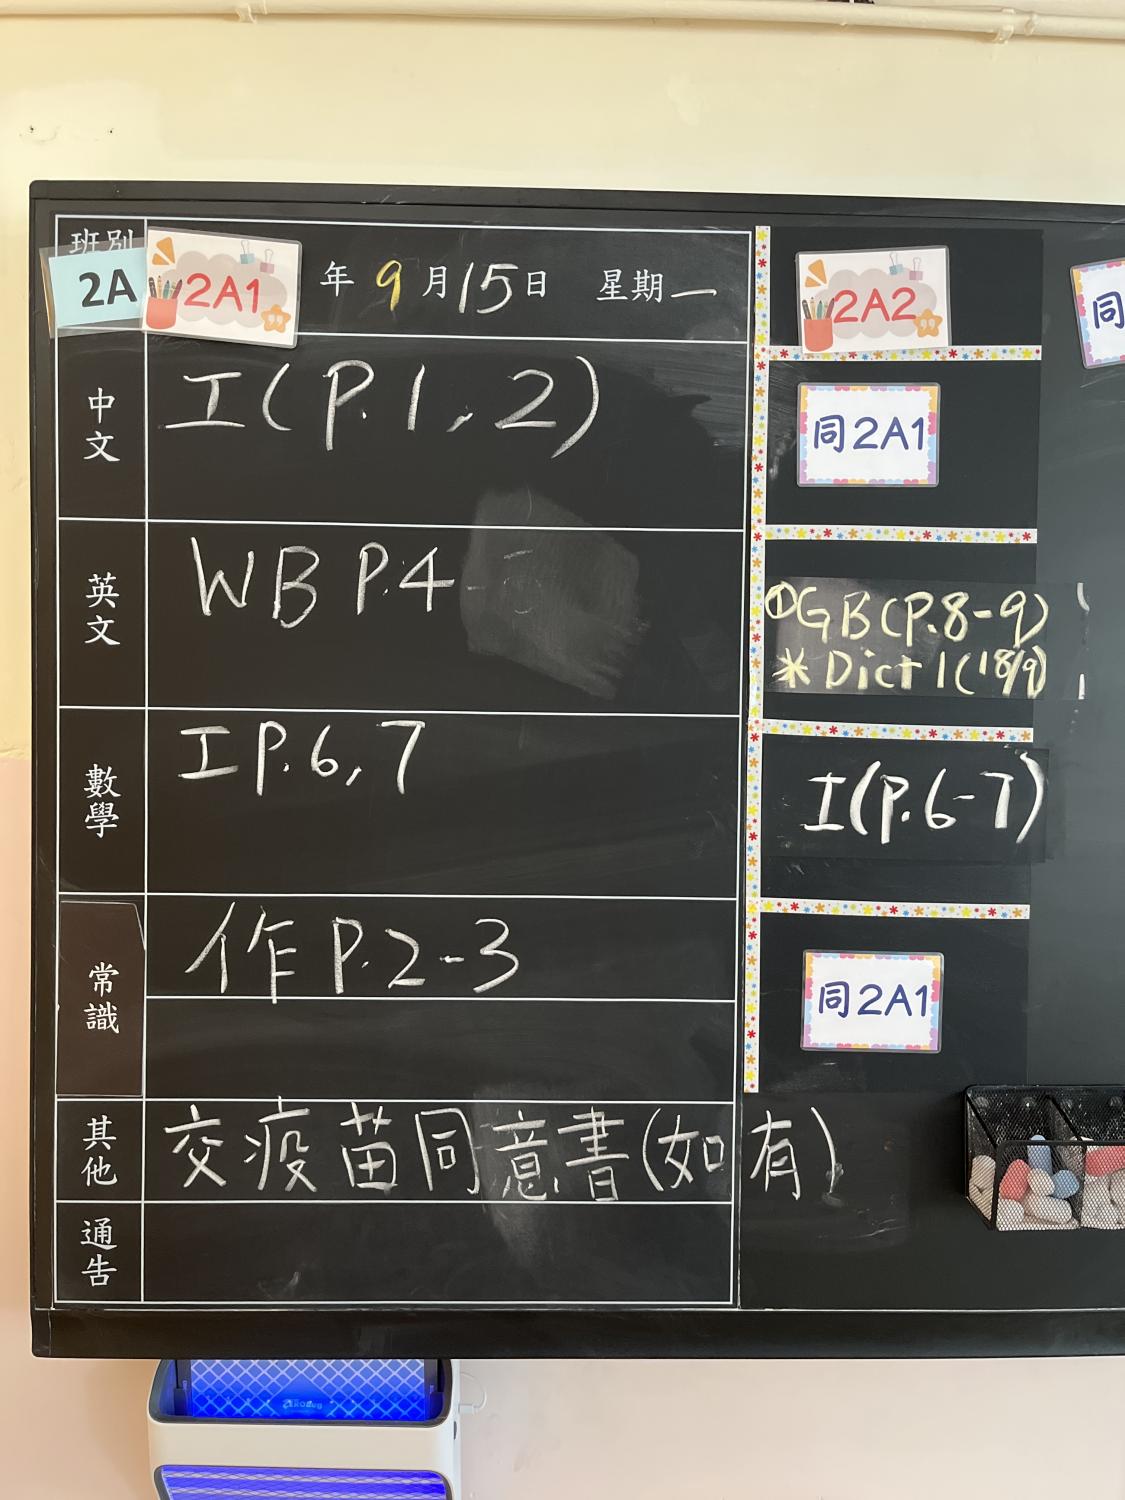 班別
2A 2A1 年 9 月 15 日 星期一
中文
工(P.1, 2)
英文
WB P.4
數學
工 P.6, 7
常識
作 P.2-3
其他
交疫苗同意書(如有)
通告
2A2
同2A1
①GB(P.8-9)
* Dict 1(18/9)
工(P.6-7)
同2A1
同